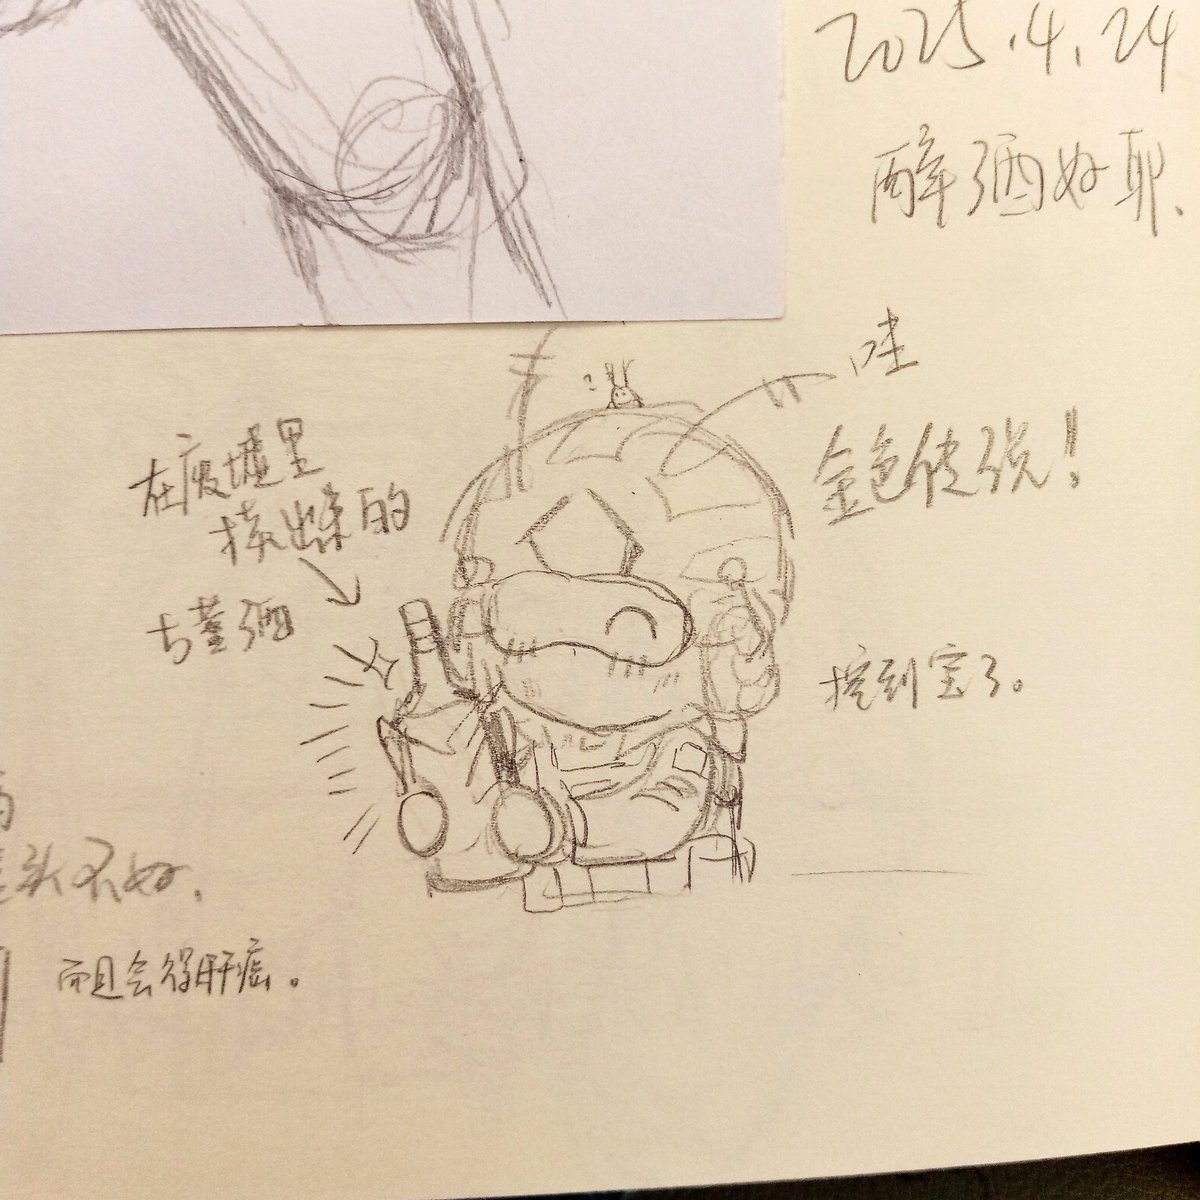 2025.4.24
酗酒好耶、
哇
金色传说!
在废墟里
摸出来的
古董酒
?
挖到宝了。
头不好、
而且会得肝癌。